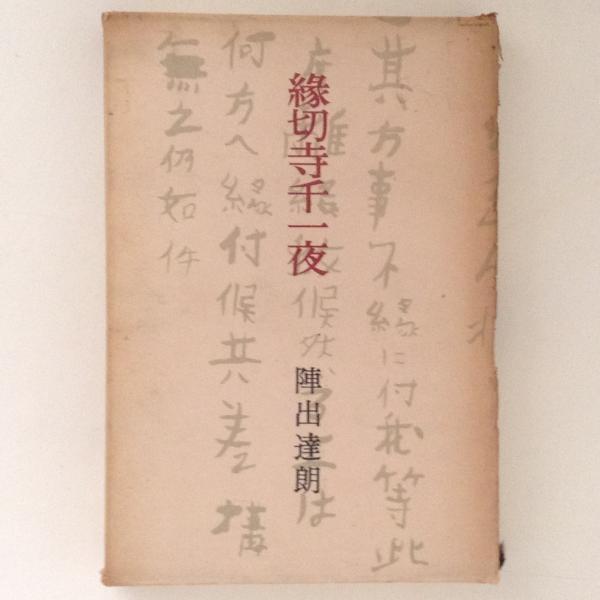 縁切寺千一夜
陣出達朗
其方事不縁に付我等此
離縁致候然
は
何方へ縁付候共差構
無之仍如件